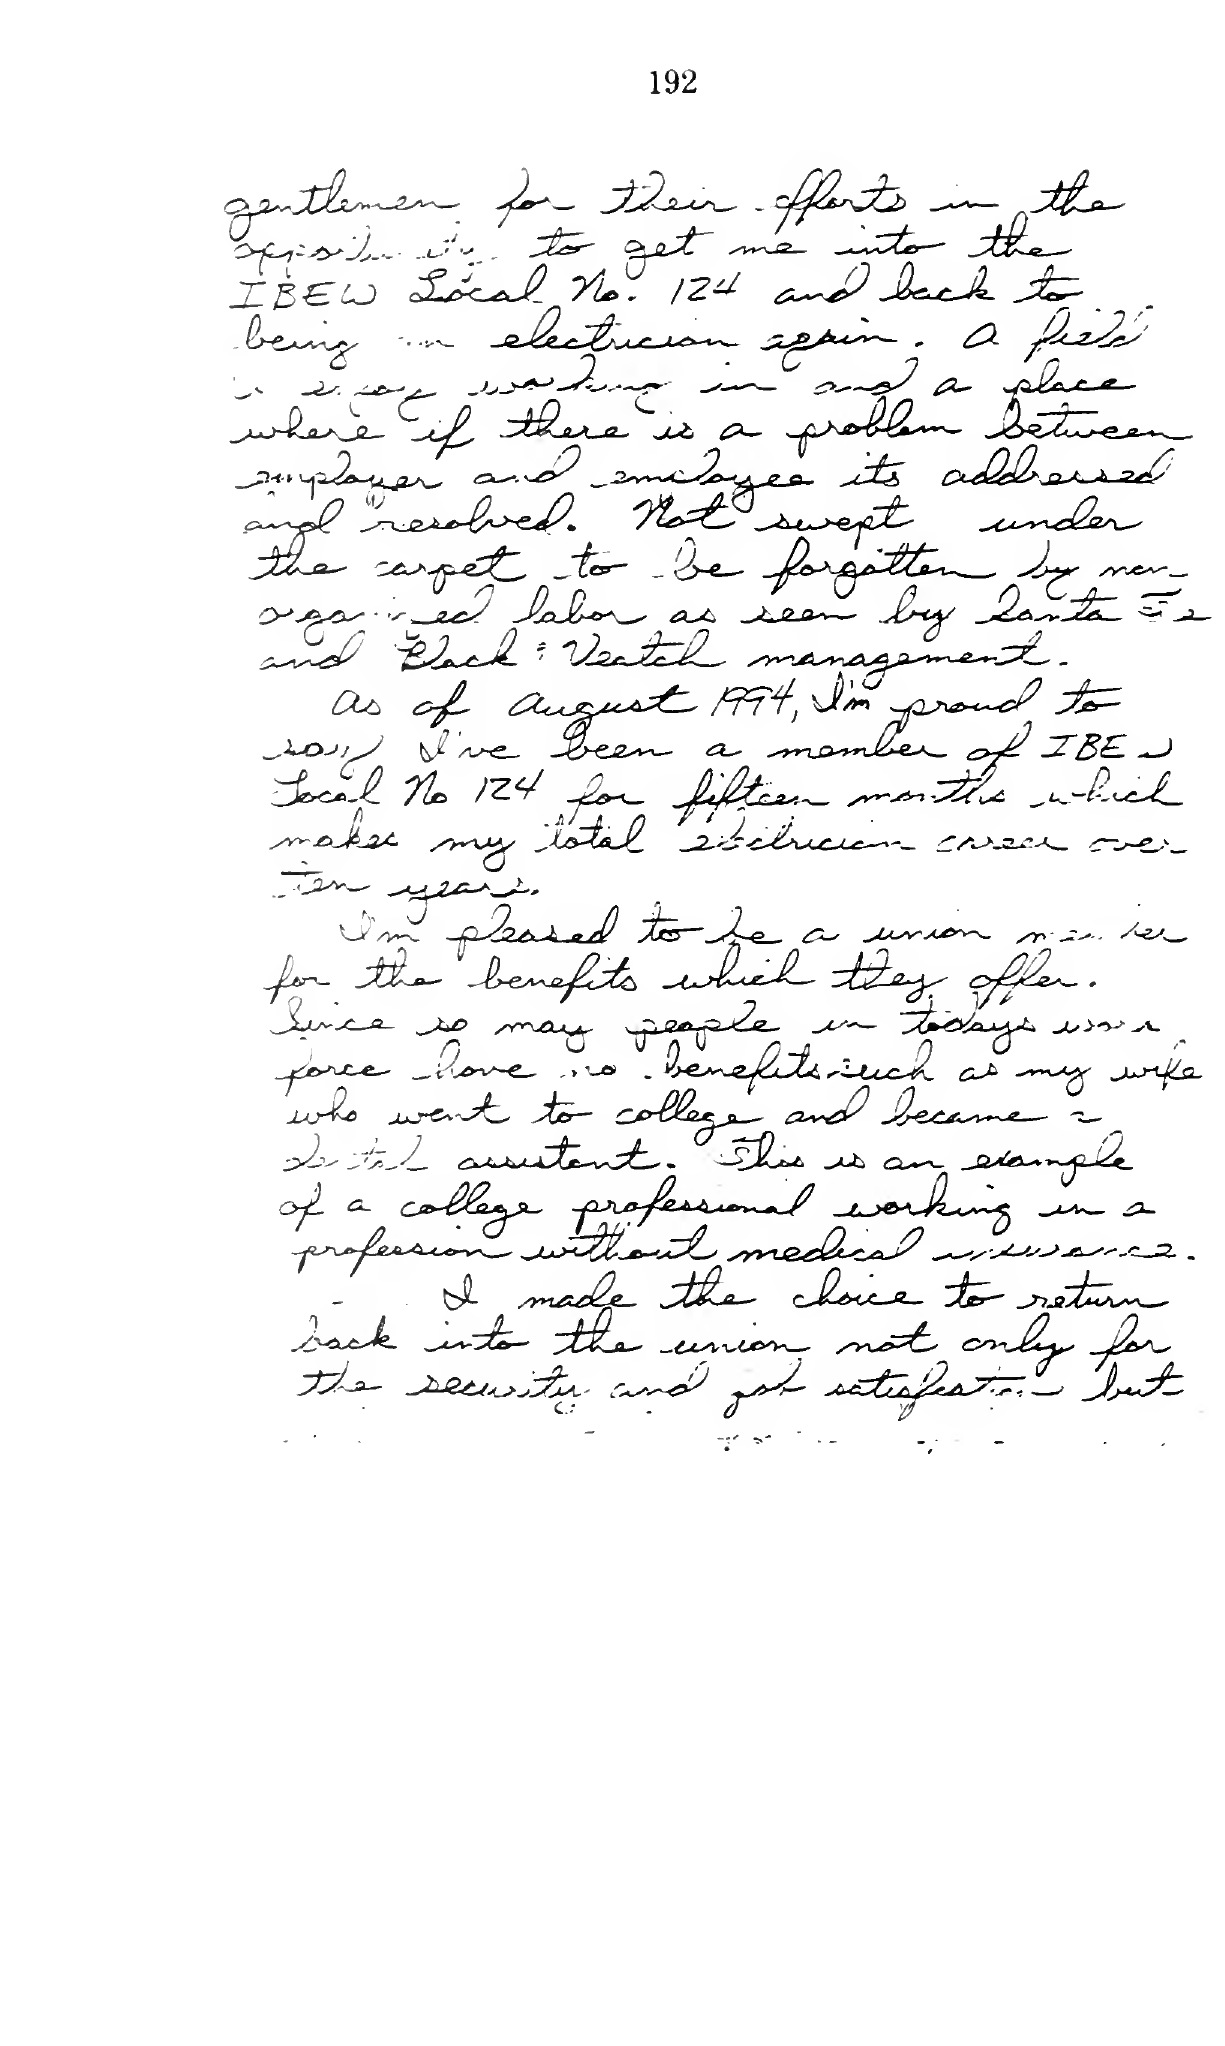 192
gentlemen for their efforts in the
opportunity to get me into the
IBEW Local No. 124 and back to
being an electrician again. A field
I enjoy working in and a place
where if there is a problem between
employer and employee its addressed
and "resolved. Not" swept under
the carpet to be forgotten by non-
organized labor as seen by Santa Fe
and Black & Veatch management.
As of August 1994, I'm proud to
say I've been a member of IBEW
Local No 124 for fifteen months which
makes my total electrician career over
ten years.
I'm pleased to be a union member
for the benefits which they offer.
Since so may people in todays work
force have no benefits such as my wife
who went to college and became a
dental assistant. This is an example
of a college professional working in a
profession without medical insurance.
I made the choice to return
back into the union not only for
the security and job satisfaction but